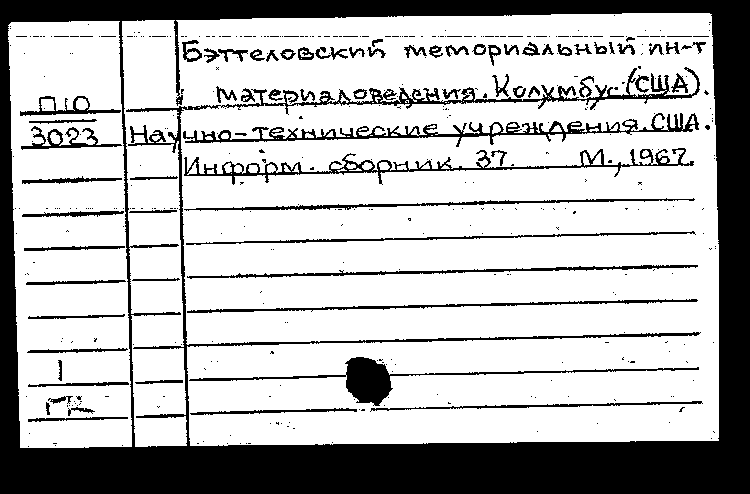 Бэттеловский мемориальный ин-т
материаловедения. Колумбус (США).
П10
3023
Научно-технические учреждения. США.
Информ. сборник. 37. М., 1967.
1
ГК